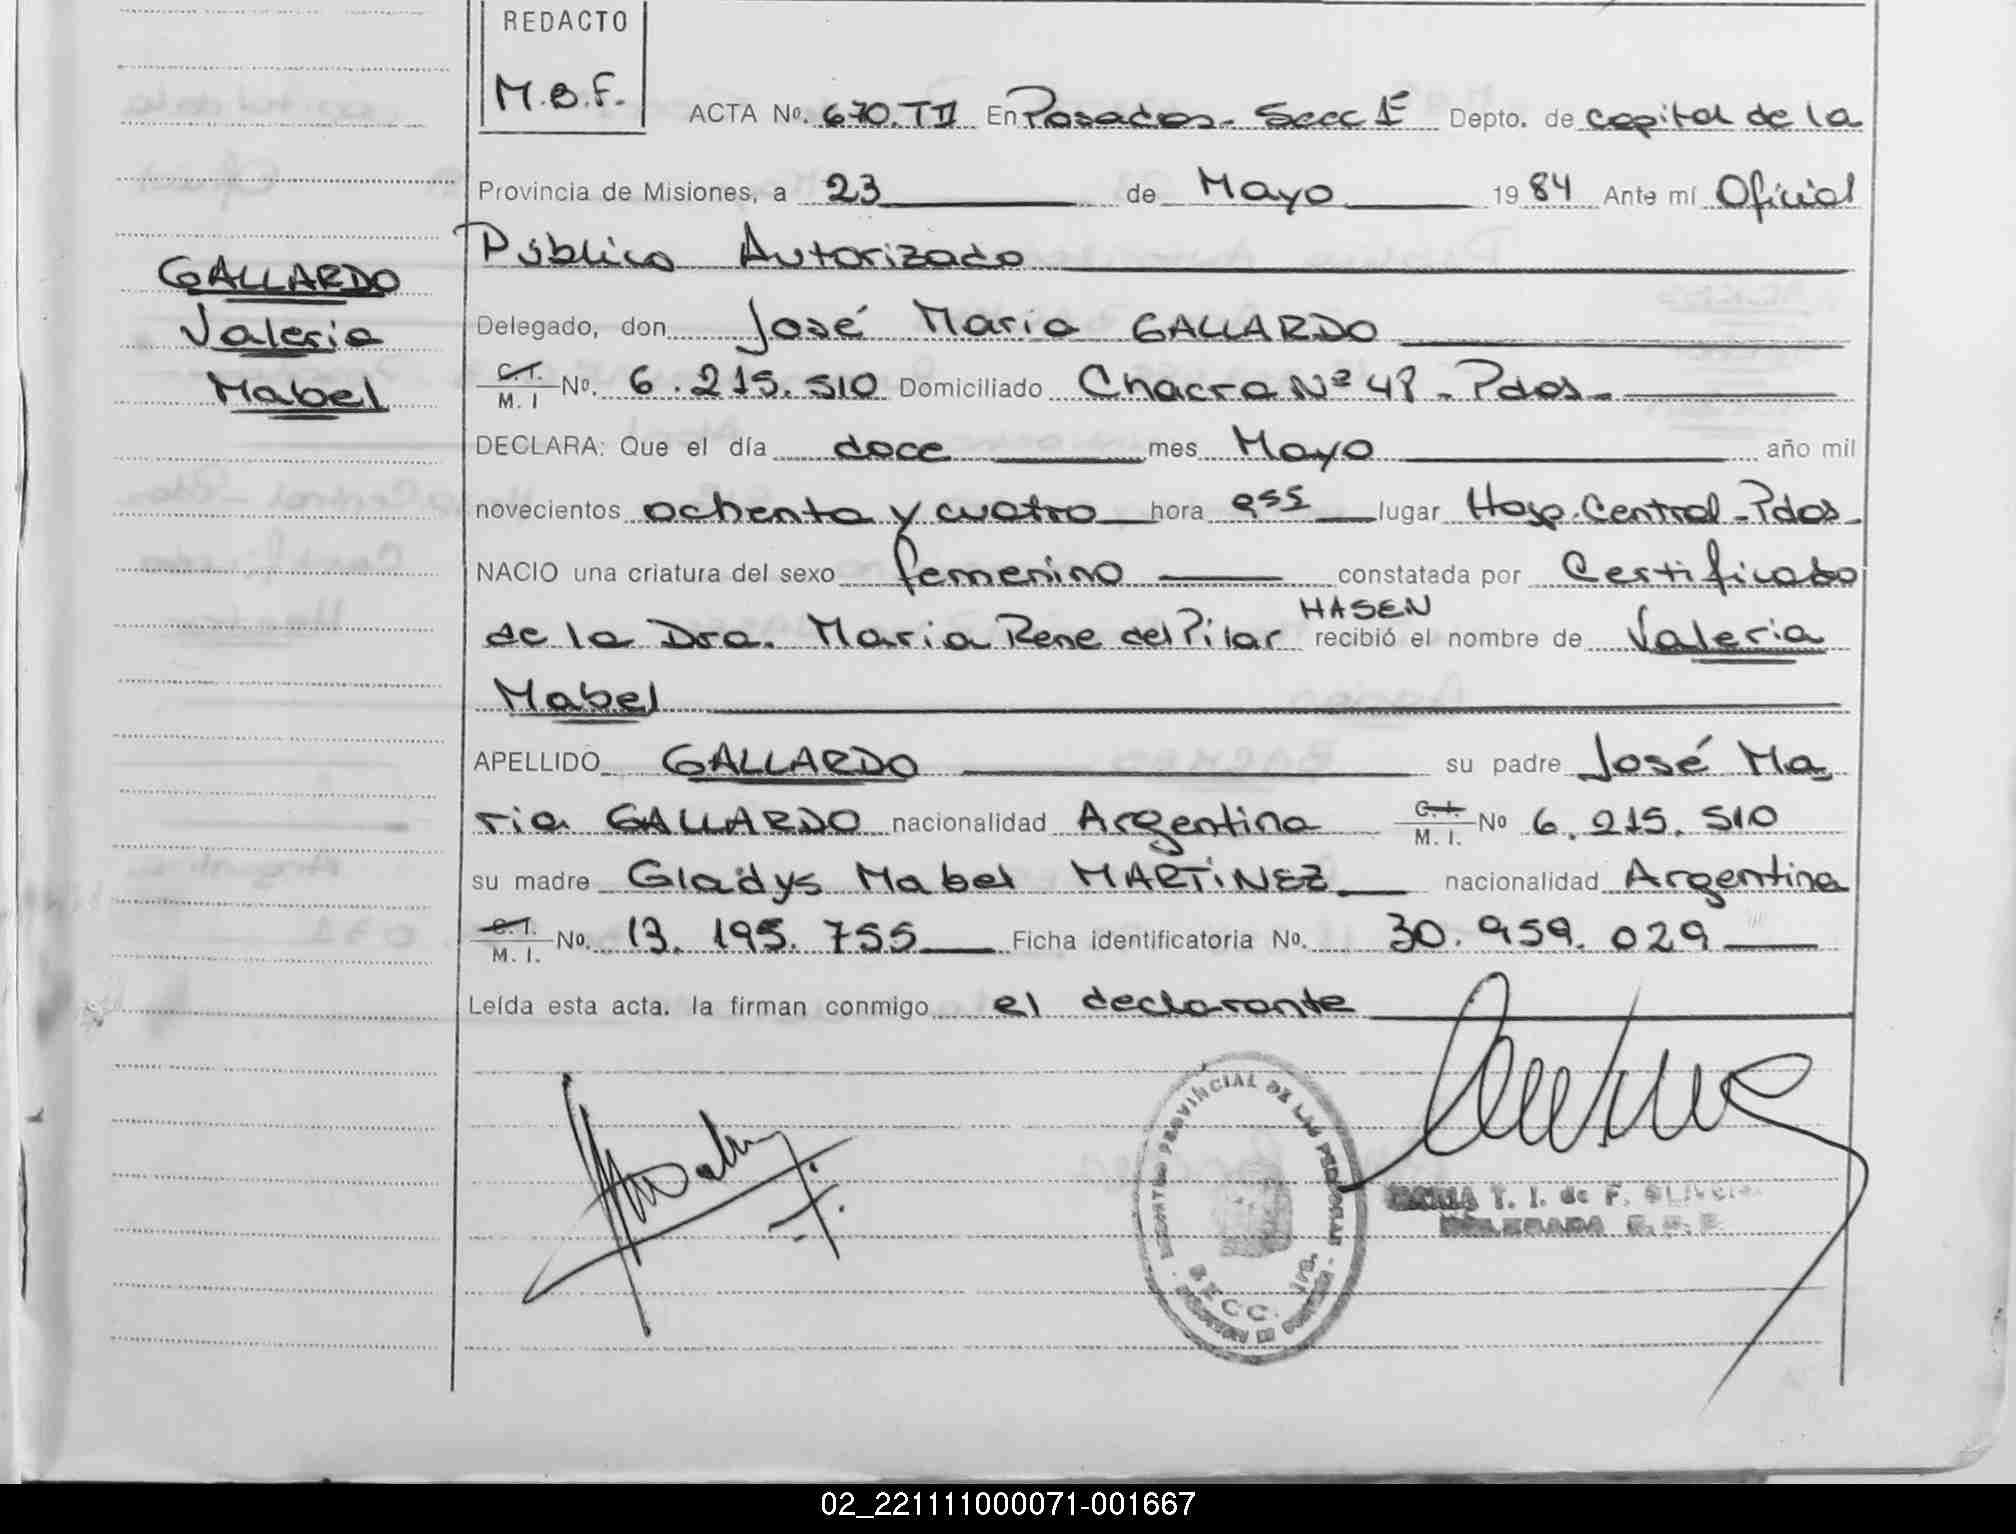 REDACTO
M.B.F.
ACTA No. 670. TII En Posadas - Secc 1ª Depto. de Capital de la
Provincia de Misiones, a 23 de Mayo 1984 Ante mí Oficial
Público Autorizado
GALLARDO
Valeria
Mabel
Delegado, don José Maria GALLARDO
C.I. M. I No. 6.215.510 Domiciliado Chacra Nº 48 - Pdas -
DECLARA: Que el día doce mes Mayo año mil
novecientos ochenta y cuatro hora 955 lugar Hosp. Central - Pdas
NACIO una criatura del sexo femenino constatada por Certificado
de la Dra. Maria Rene del Pilar HASEN recibió el nombre de Valeria
Mabel
APELLIDO GALLARDO su padre José Ma
ria GALLARDO nacionalidad Argentina C.I. M. I. No 6.215.510
su madre Gladys Mabel MARTiNEZ nacionalidad Argentina
C.I. M. I. No. 13.195.755 Ficha identificatoria No. 30.959.029
Leída esta acta. la firman conmigo el declarante
PROVINCIAL DE LAS PERSONAS
SECC. 1ra.
MARIA T. I. de F. OLIVEIRA
DELEGADA R.P.P.
02_221111000071-001667